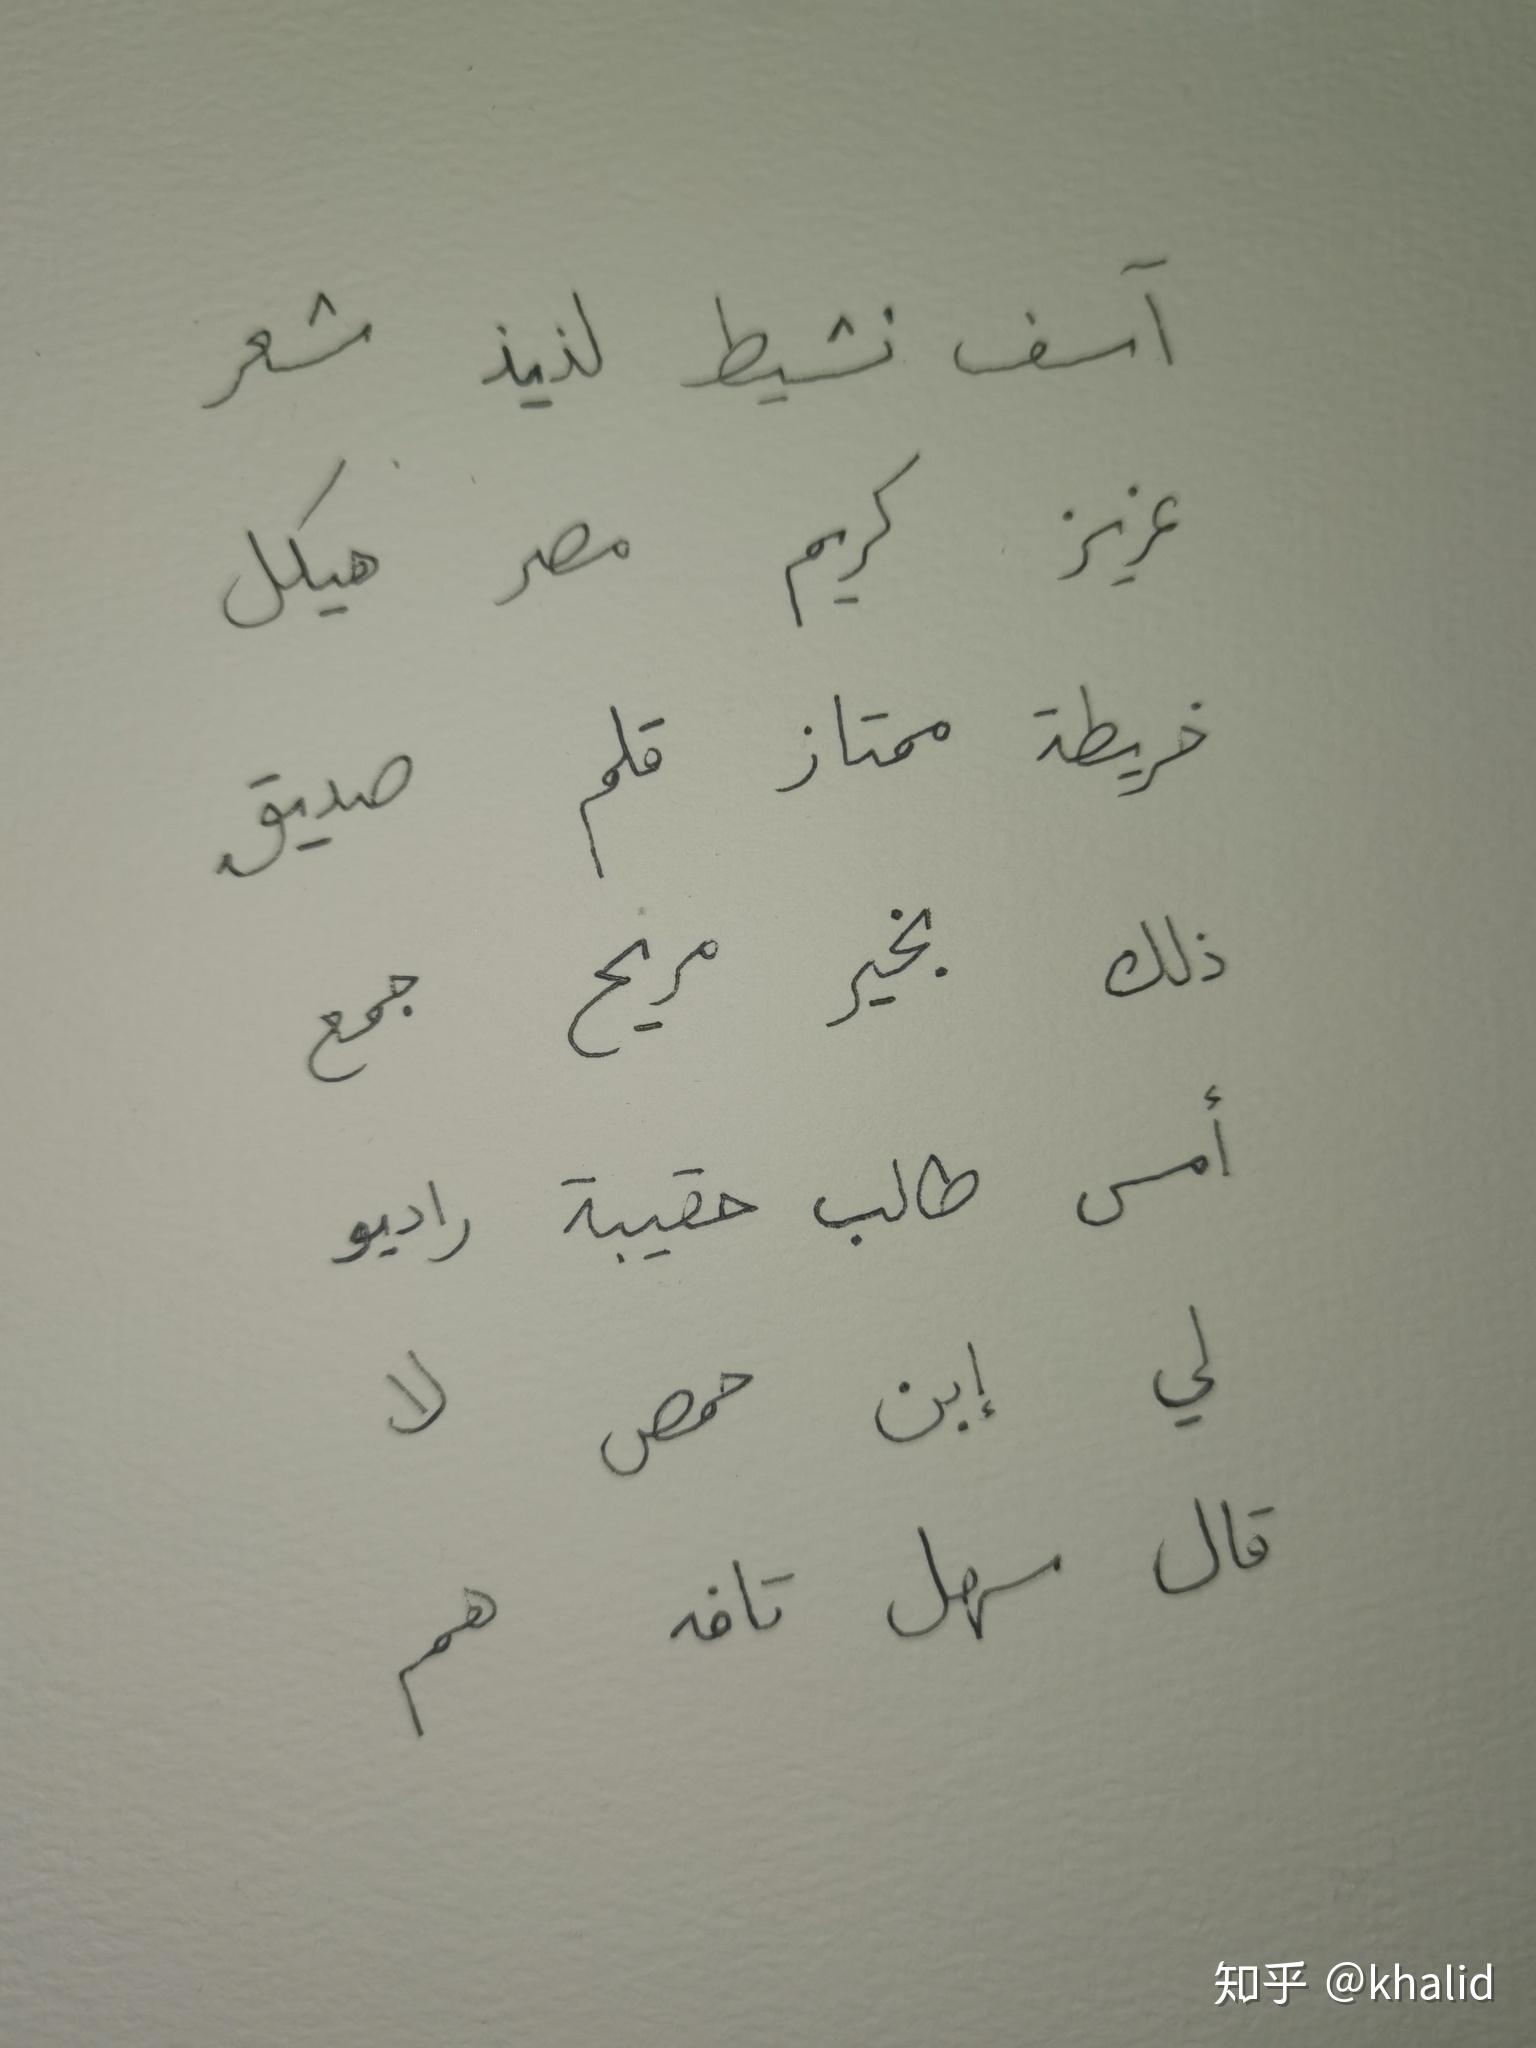 آسف نشيط لذيذ شعر
عزيز كريم مصر هيكل
خريطة ممتاز قلم صديق
ذلك بخير مريح جمع
أمس طالب حقيبة راديو
لي إبن حمص لا
قال سهل تافه هم
知乎 @khalid